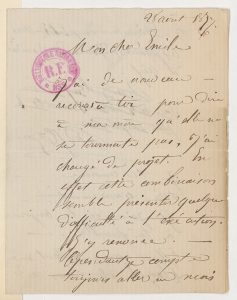 25 août 187
Mon cher Emile
J'ai de nouveau
recours à toi pour dire
à ma mère qu'elle ne
se tourmente pas, j'ai
changé de projet. En
effet cette combinaison
semble présenter quelque
difficulté à l'exécution.
J'y renonce.
Cependant je compte
toujours aller un mois
R.F.